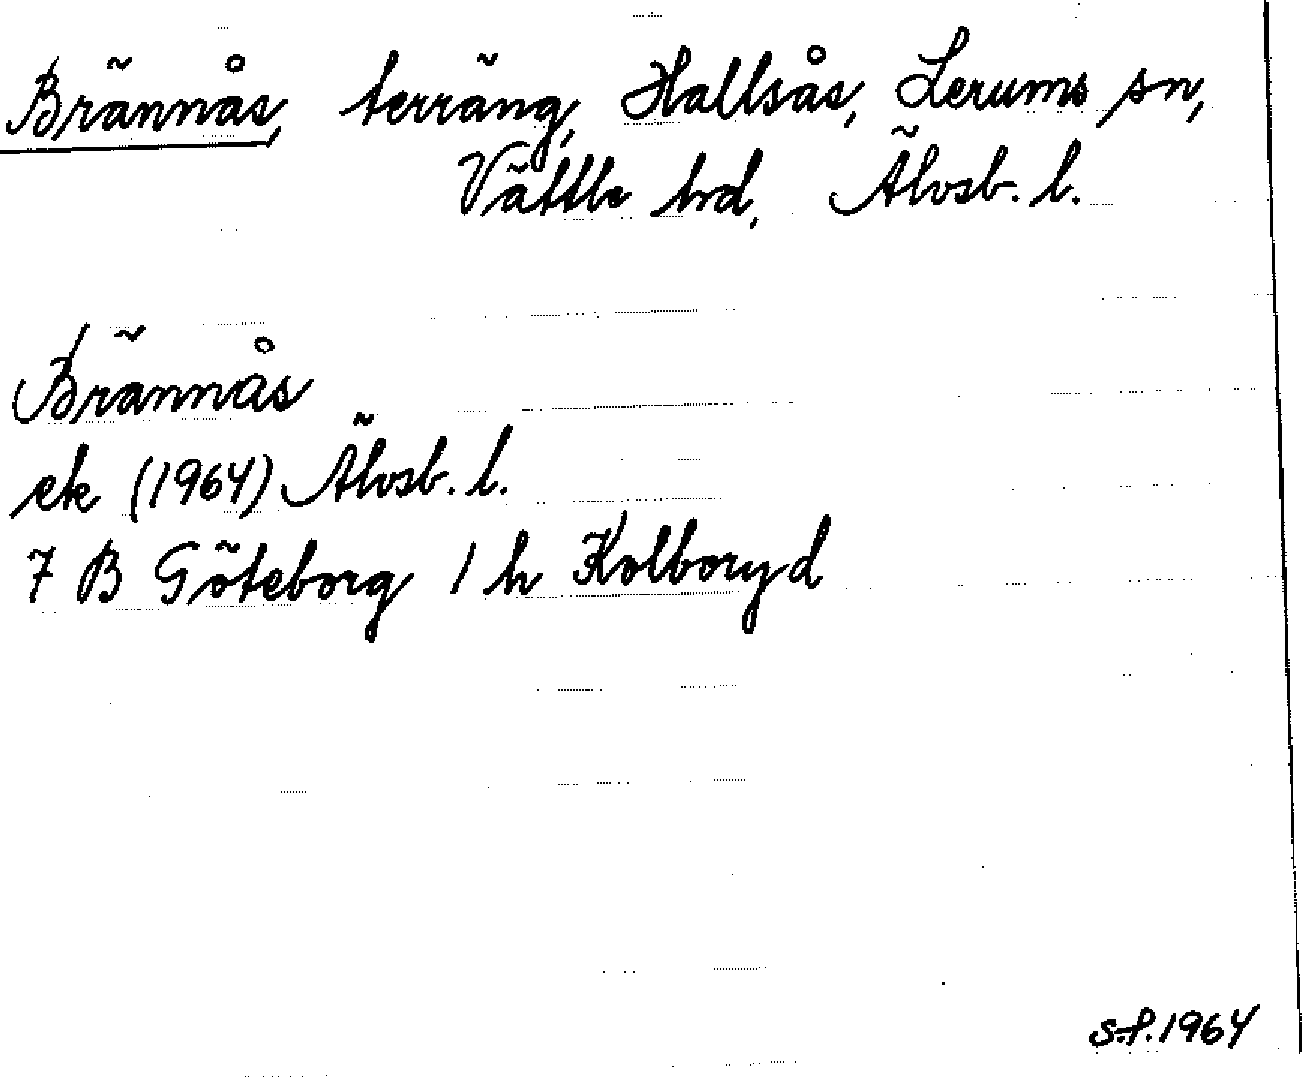 Brännås, terräng, Hallsås, Lerums sn,
Vättle hd, Älvsb. l.
Brännås
ek (1964) Älvsb. l.
7 B Göteborg 1 h Kolboryd
s.f. 1964